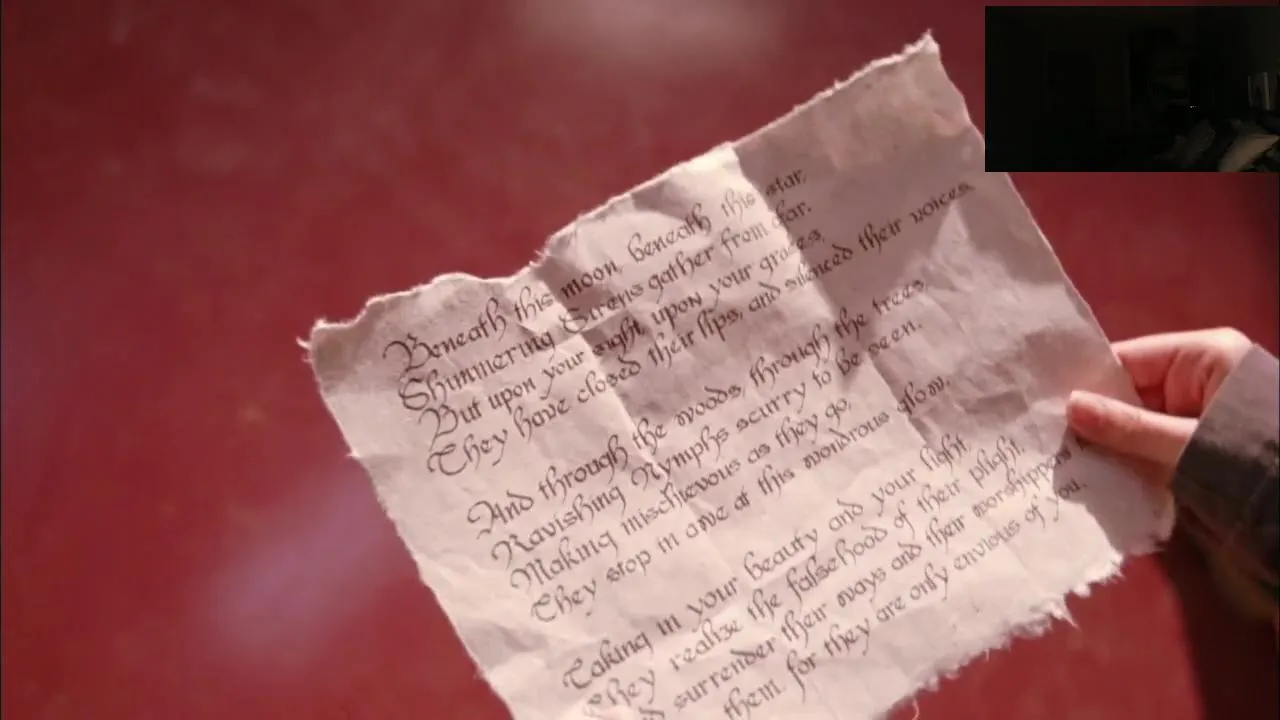 Beneath this moon, beneath this star,
Shimmering Sirens gather from afar.
But upon your sight, upon your graces,
They have closed their lips, and silenced their voices.
And through the woods, through the trees,
Ravishing Nymphs scurry to be seen.
Making mischievous as they go,
They stop in awe at this wondrous glow.
Taking in your beauty and your light,
They realize the falsehood of their plight,
surrender their ways and their worshippers
them, for they are only envious of you.